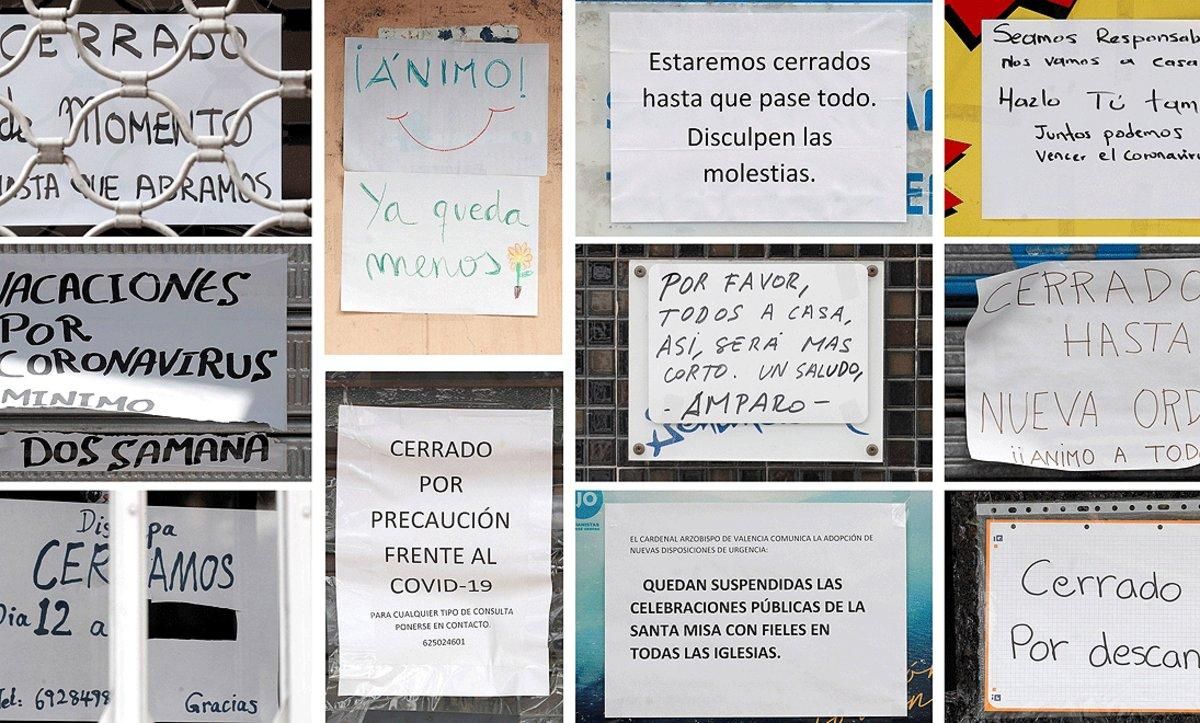 CERRADO
de MOMENTO
HASTA QUE ABRAMOS
¡ÁNIMO!
Ya queda
menos
Estaremos cerrados
hasta que pase todo.
Disculpen las
molestias.
Seamos Responsab
nos vamos a casa
Hazlo Tú tam
Juntos podemos
Vencer el coronaviru
VACACIONES
POR
CORONAVIRUS
MINIMO
DOS SAMANA
POR FAVOR,
TODOS A CASA,
ASÍ, SERÁ MAS
CORTO. UN SALUDO,
- AMPARO -
CERRADO
HASTA
NUEVA ORD
¡¡ANIMO A TOD
CERRADO
POR
PRECAUCIÓN
FRENTE AL
COVID-19
PARA CUALQUIER TIPO DE CONSULTA
PONERSE EN CONTACTO.
625024601
Dis pa
CER AMOS
Dia 12 a
Tel: 6928498
Gracias
EL CARDENAL ARZOBISPO DE VALENCIA COMUNICA LA ADOPCIÓN DE
NUEVAS DISPOSICIONES DE URGENCIA:
QUEDAN SUSPENDIDAS LAS
CELEBRACIONES PÚBLICAS DE LA
SANTA MISA CON FIELES EN
TODAS LAS IGLESIAS.
Cerrado
Por descan